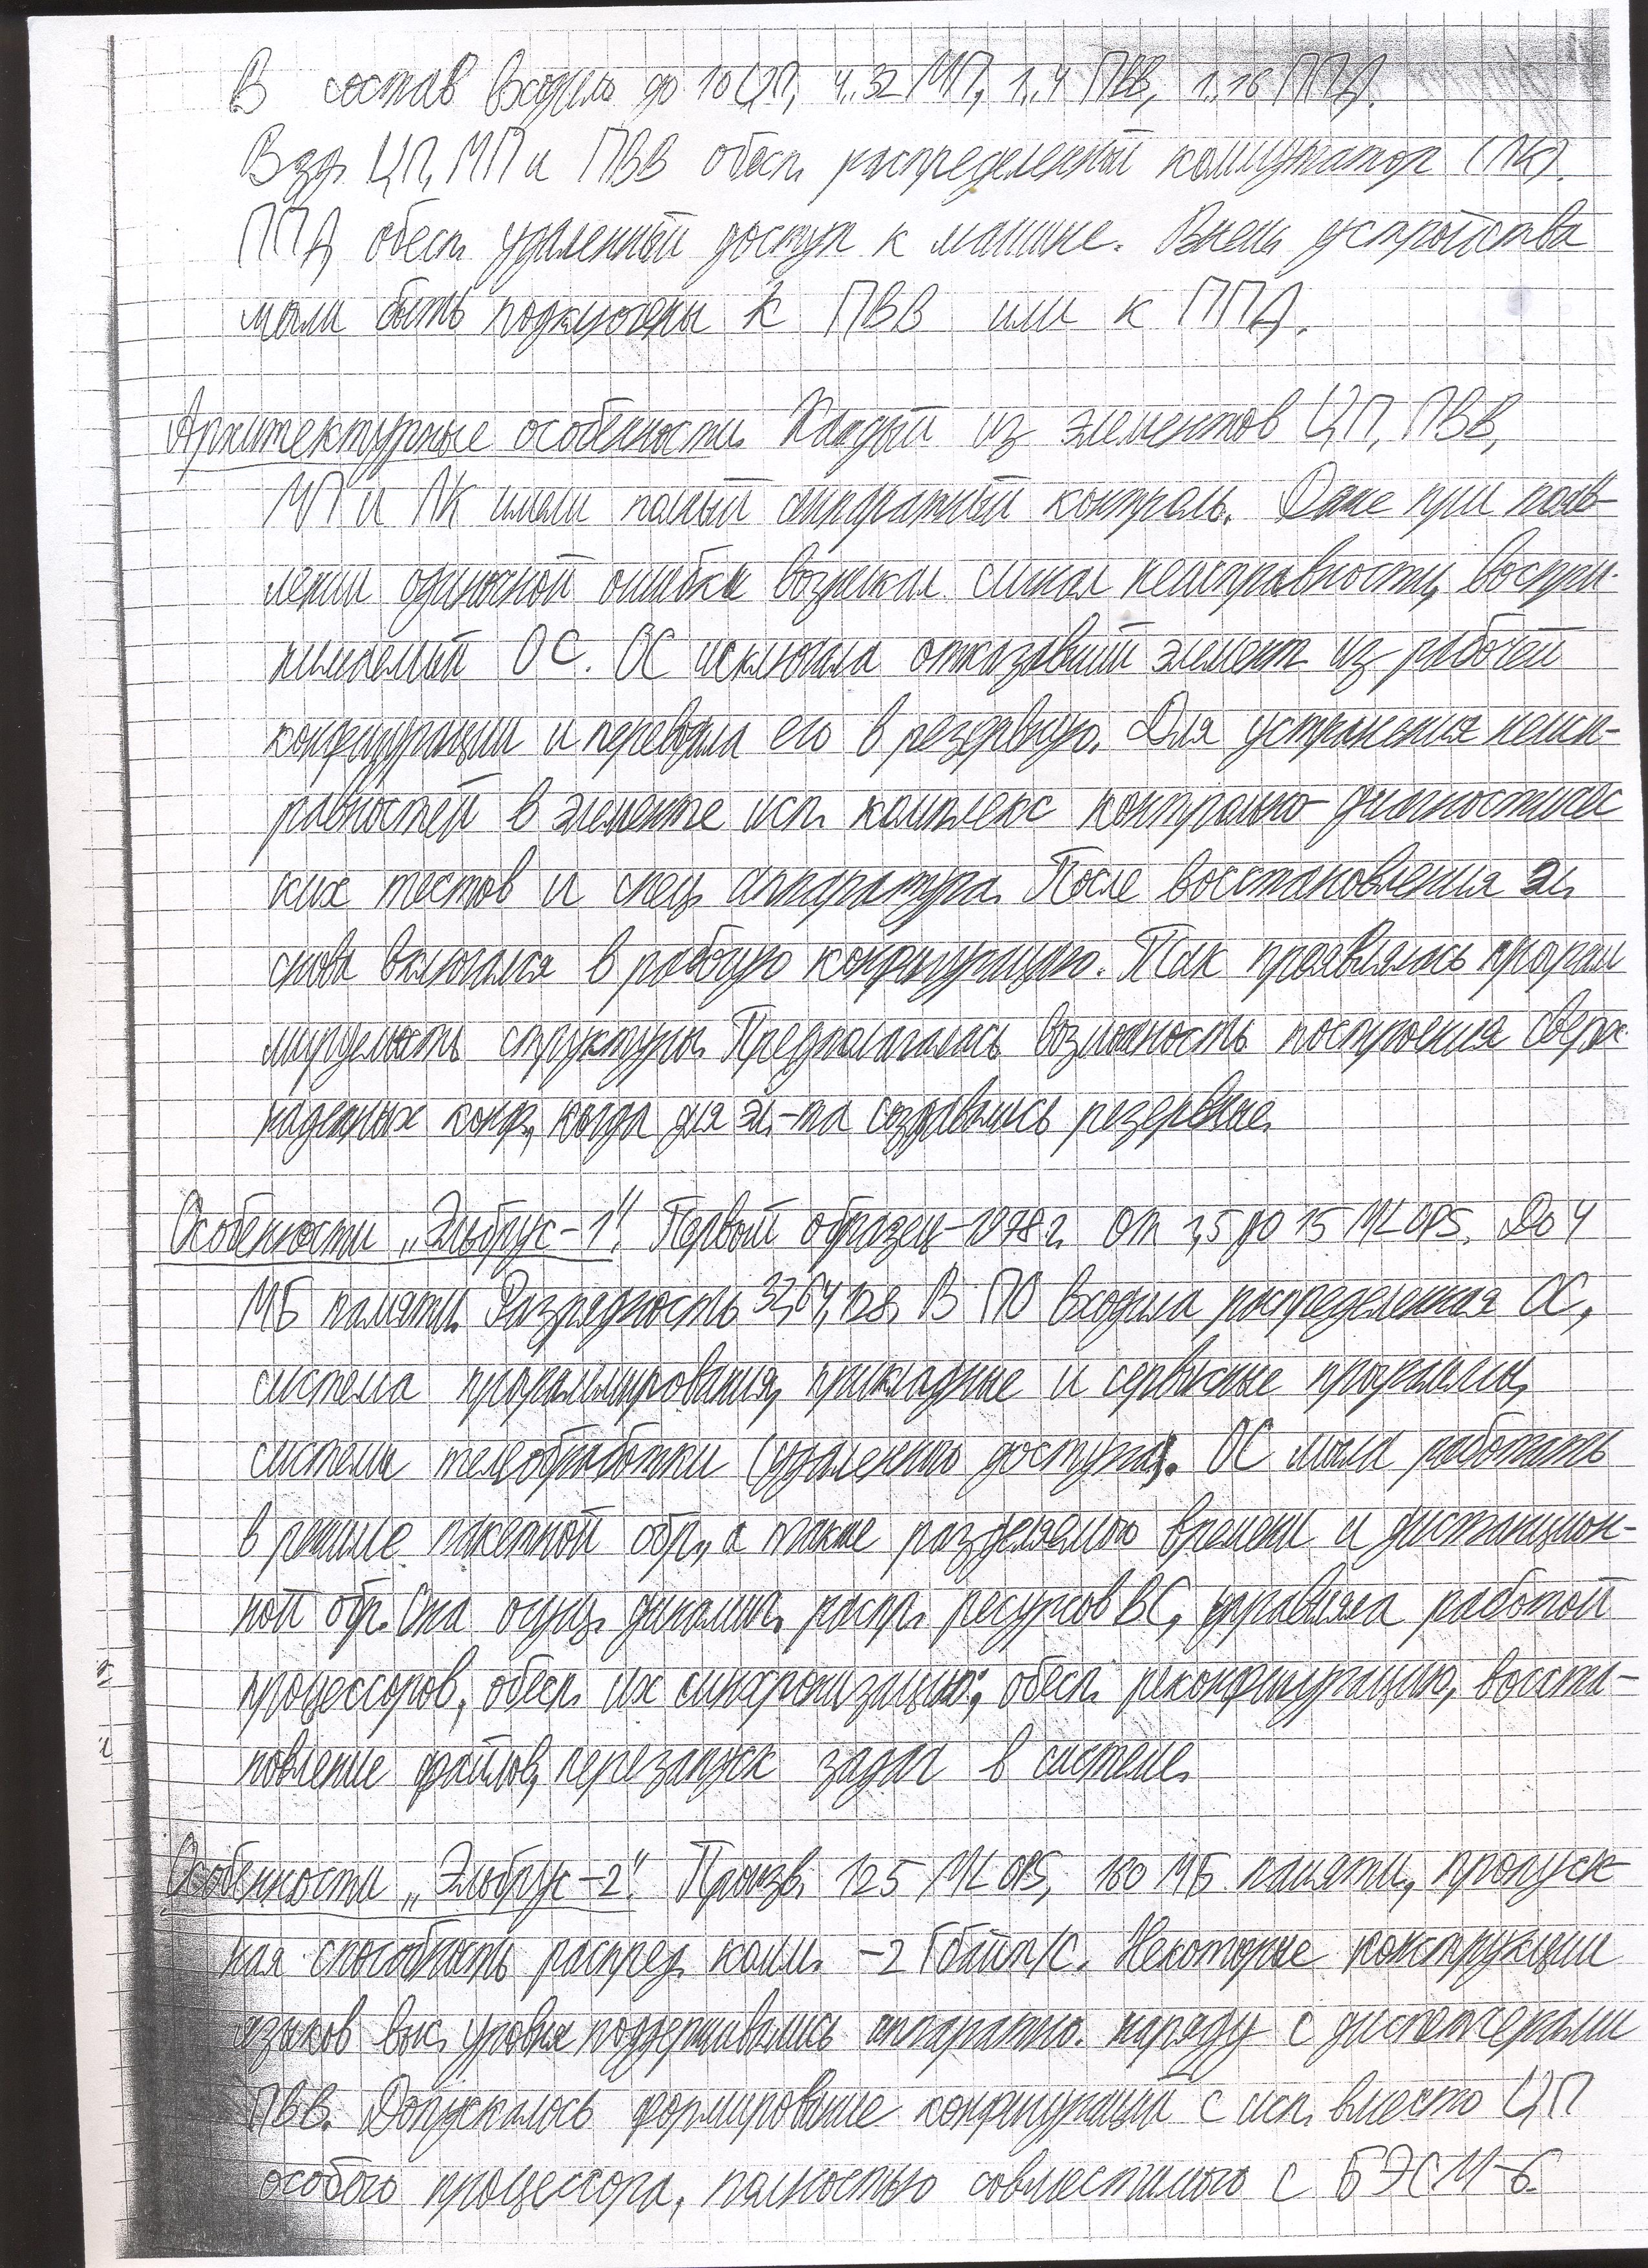 В состав входило до 10 ЦП, 4..32 МП, 1..4 ПВВ, 1..16 ППД.
Взд. ЦП, МП и ПВВ обесп. распределенный коммутатор (ПК).
ППД обесп. удаленный доступ к машине. Внеш. устройства
могли быть подключены к ПВВ или к ППД.
Архитектурные особенности. Каждый из элементов ЦП, ПВВ,
МП и ПК имели полный аппаратный контроль. Даже при появ-
лении одиночной ошибки возникал сигнал неисправности, воспри-
нимаемый ОС. ОС исключала отказавший элемент из рабочей
конфигурации и переводила его в резервную. Для устранения неисп-
равностей в элементе исп. комплекс контрольно-диагностичес
ких тестов и спец. аппаратура. После восстановления эл.
снова включался в рабочую конфигурацию. Так проявлялась програм
мируемость структуры. Предполагалась возможность построения сверх-
надежных конф., когда для эл-та создавались резервные.
Особенности „Эльбрус-1". Первый образец - 1978 г. От 1,5 до 15 MLOPS. До 4
МБ памяти. Разрядность 32, 64, 128. В ПО входила распределенная ОС,
система программирования, прикладные и сервисные программы,
система телеобработки (удаленного доступа). ОС могла работать
в режиме пакетной обр., а также разделяемого времени и дистанцион-
ной обр. Она осущ. динамич. распр. ресурсов ВС, управляла работой
процессоров, обесп. их синхронизацию; обесп. реконфигурацию, восста-
новление файлов, перезапуск задач в системе.
Особенности „Эльбрус-2". Произв. 125 MLOPS, 160 МБ памяти, пропуск
ная способность распред. комм. - 2 Гбайт/с. Некоторые конструкции
языков выс. уровня поддерживались аппаратно. наряду с диспетчерами
ПВВ. Допускалось формирование конфигураций с исп. вместо ЦП
особого процессора, полностью совместимого с БЭСМ-6.